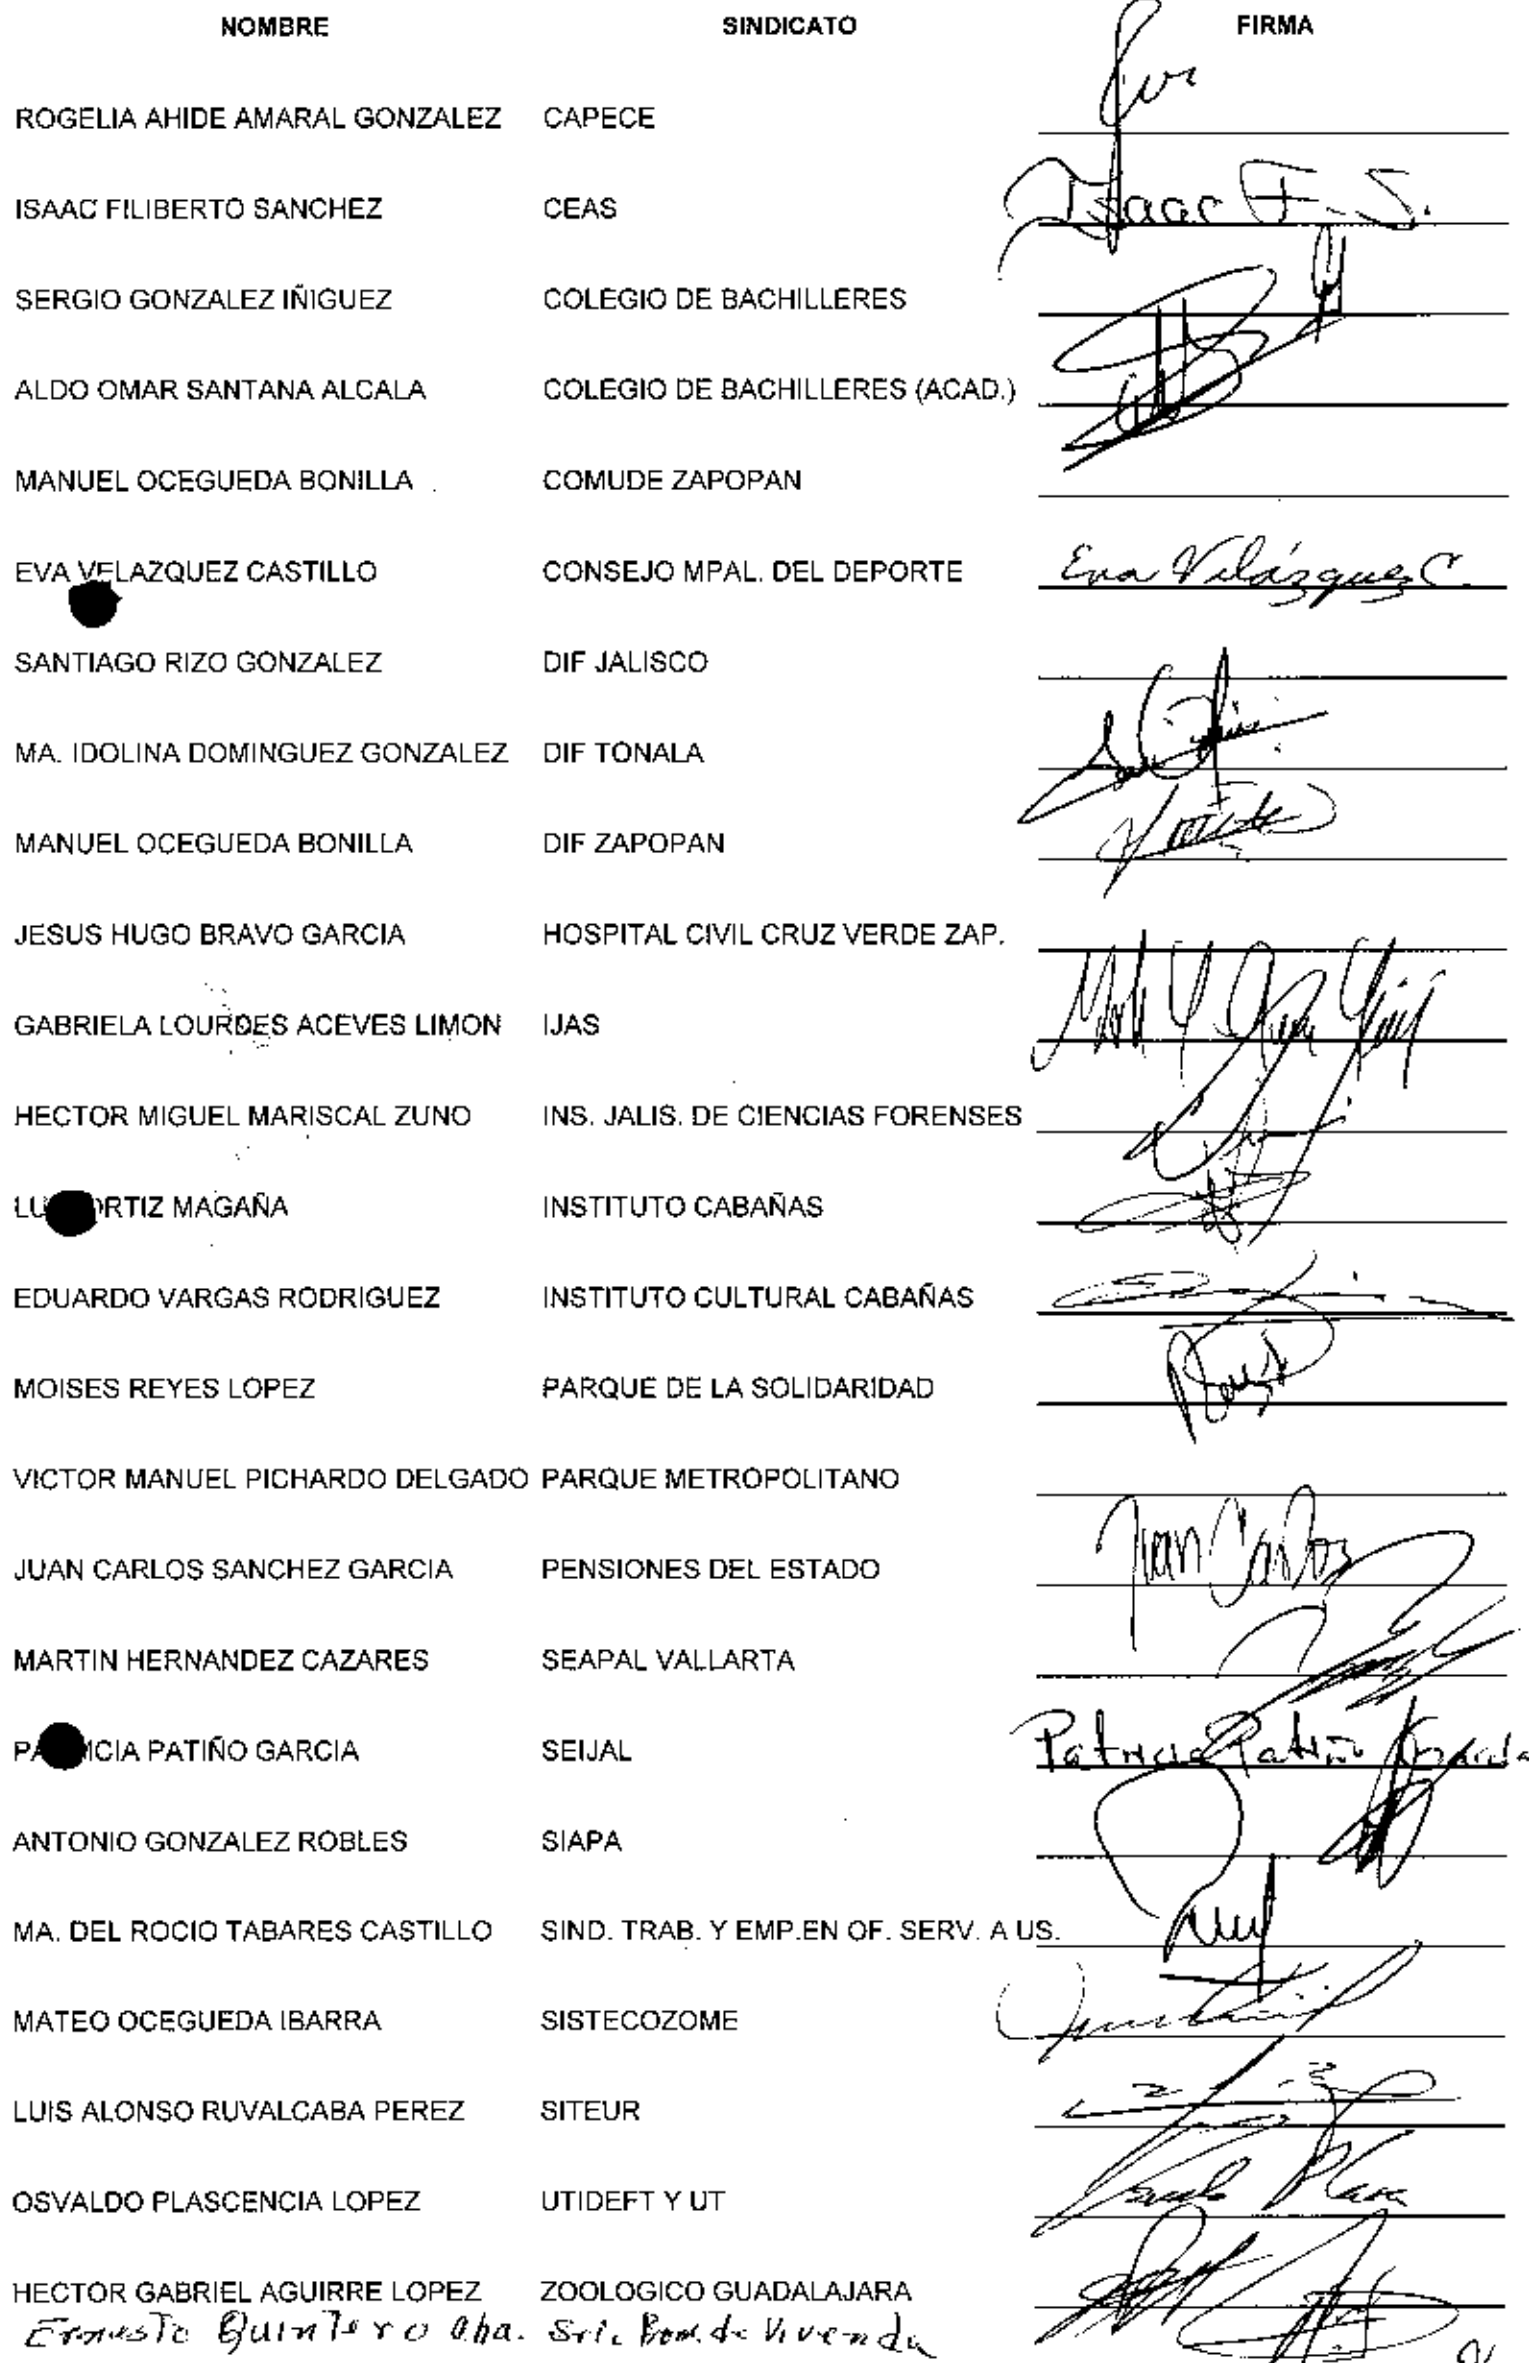 NOMBRE SINDICATO FIRMA
ROGELIA AHIDE AMARAL GONZALEZ CAPECE
ISAAC FILIBERTO SANCHEZ CEAS Isaac F. S.
SERGIO GONZALEZ IÑIGUEZ COLEGIO DE BACHILLERES
ALDO OMAR SANTANA ALCALA COLEGIO DE BACHILLERES (ACAD.)
MANUEL OCEGUEDA BONILLA COMUDE ZAPOPAN
EVA VELAZQUEZ CASTILLO CONSEJO MPAL. DEL DEPORTE Eva Velázquez C.
SANTIAGO RIZO GONZALEZ DIF JALISCO
MA. IDOLINA DOMINGUEZ GONZALEZ DIF TONALA
MANUEL OCEGUEDA BONILLA DIF ZAPOPAN
JESUS HUGO BRAVO GARCIA HOSPITAL CIVIL CRUZ VERDE ZAP.
GABRIELA LOURDES ACEVES LIMON IJAS
HECTOR MIGUEL MARISCAL ZUNO INS. JALIS. DE CIENCIAS FORENSES
ORTIZ MAGAÑA INSTITUTO CABAÑAS
EDUARDO VARGAS RODRIGUEZ INSTITUTO CULTURAL CABAÑAS
MOISES REYES LOPEZ PARQUE DE LA SOLIDARIDAD
VICTOR MANUEL PICHARDO DELGADO PARQUE METROPOLITANO
JUAN CARLOS SANCHEZ GARCIA PENSIONES DEL ESTADO Juan Carlos
MARTIN HERNANDEZ CAZARES SEAPAL VALLARTA
PATRICIA PATIÑO GARCIA SEIJAL Patricia Patiño García
ANTONIO GONZALEZ ROBLES SIAPA
MA. DEL ROCIO TABARES CASTILLO SIND. TRAB. Y EMP.EN OF. SERV. A US.
MATEO OCEGUEDA IBARRA SISTECOZOME
LUIS ALONSO RUVALCABA PEREZ SITEUR
OSVALDO PLASCENCIA LOPEZ UTIDEFT Y UT
HECTOR GABRIEL AGUIRRE LOPEZ ZOOLOGICO GUADALAJARA
Ernesto Quintero de Vivenda